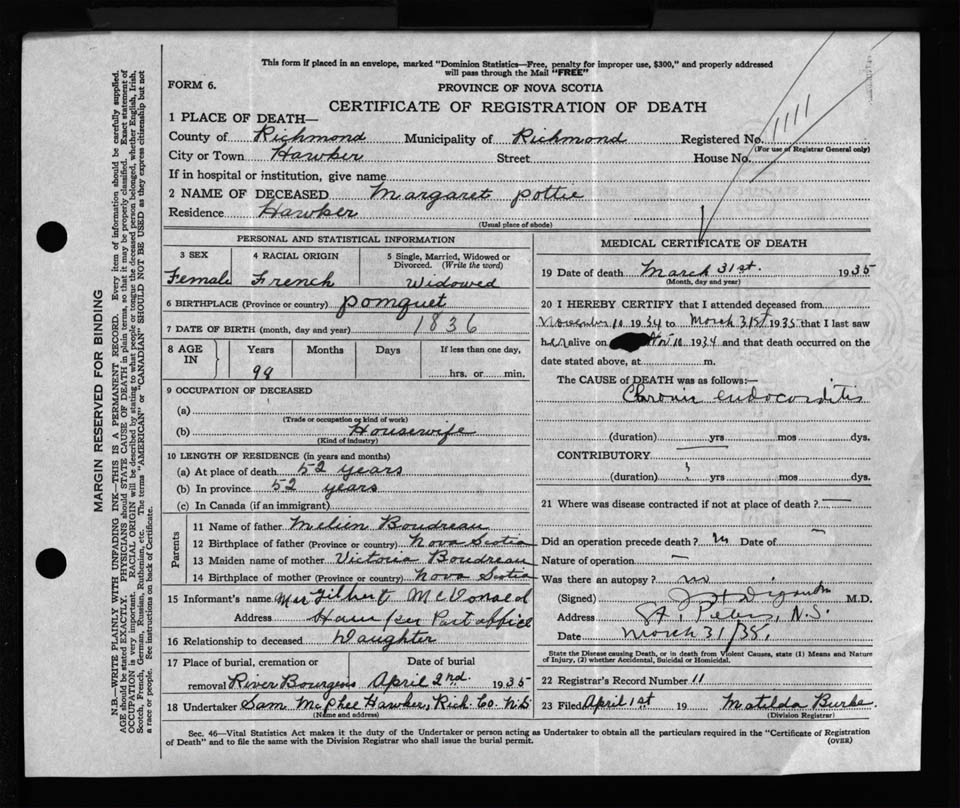 This form if placed in an envelope, marked "Dominion Statistics—Free, penalty for improper use, $300," and properly addressed
will pass through the Mail "FREE"
FORM 6.
PROVINCE OF NOVA SCOTIA
CERTIFICATE OF REGISTRATION OF DEATH
1111
1 PLACE OF DEATH—
County of Richmond Municipality of Richmond Registered No.
(For use of Registrar General only)
City or Town Hawker Street House No.
If in hospital or institution, give name
2 NAME OF DECEASED Margaret Pottie
Residence Hawker
(Usual place of abode)
PERSONAL AND STATISTICAL INFORMATION
3 SEX 4 RACIAL ORIGIN 5 Single, Married, Widowed or
Divorced. (Write the word)
Female French Widowed
6 BIRTHPLACE (Province or country) Pomquet
7 DATE OF BIRTH (month, day and year) 1836
8 AGE IN Years Months Days If less than one day,
99 hrs. or min.
9 OCCUPATION OF DECEASED
(a)
(Trade or occupation or kind of work)
(b) Housewife
(Kind of industry)
10 LENGTH OF RESIDENCE (in years and months)
(a) At place of death 52 years
(b) In province 52 years
(c) In Canada (if an immigrant)
Parents
11 Name of father Melien Boudreau
12 Birthplace of father (Province or country) Nova Scotia
13 Maiden name of mother Victoria Boudreau
14 Birthplace of mother (Province or country) Nova Scotia
15 Informant's name Mrs Gilbert McDonald
Address Hawker Post office
16 Relationship to deceased Daughter
17 Place of burial, cremation or Date of burial
removal River Bourgeois April 2nd 1935
18 Undertaker Sam McPhee Hawker, Rich. Co. N.S
(Name and address)
MEDICAL CERTIFICATE OF DEATH
19 Date of death March 31st. 1935
(Month, day and year)
20 I HEREBY CERTIFY that I attended deceased from
November 10 1934 to March 31st 1935 that I last saw
her alive on Nov 10 1934 and that death occurred on the
date stated above, at m.
The CAUSE of DEATH was as follows:—
Chronic endocorditis
(duration) yrs mos dys.
CONTRIBUTORY
(duration) yrs mos dys.
21 Where was disease contracted if not at place of death?
Did an operation precede death? no Date of
Nature of operation
Was there an autopsy? no
(Signed) M.D.
Address St. Peters, N.S.
Date March 31/35.
State the Disease causing Death, or in death from Violent Causes, state (1) Means and Nature
of Injury, (2) whether Accidental, Suicidal or Homicidal.
22 Registrar's Record Number 11
23 Filed April 1st 19 Matilda Burke
(Division Registrar)
Sec. 46—Vital Statistics Act makes it the duty of the Undertaker or person acting as Undertaker to obtain all the particulars required in the "Certificate of Registration
of Death" and to file the same with the Division Registrar who shall issue the burial permit.
(OVER)
MARGIN RESERVED FOR BINDING
N.B.—WRITE PLAINLY WITH UNFADING INK—THIS IS A PERMANENT RECORD. Every item of information should be carefully supplied.
AGE should be stated EXACTLY. PHYSICIANS should STATE CAUSE OF DEATH in plain terms, so that it may be properly classified. Exact statement of
OCCUPATION is very important. RACIAL ORIGIN will be described by stating to what people or tongue the deceased person belonged, whether English, Irish,
Scotch, French, German, Russian, Ruthenian, etc. The terms "AMERICAN" or "CANADIAN" SHOULD NOT BE USED as they express citizenship but not
a race or people. See instructions on back of Certificate.